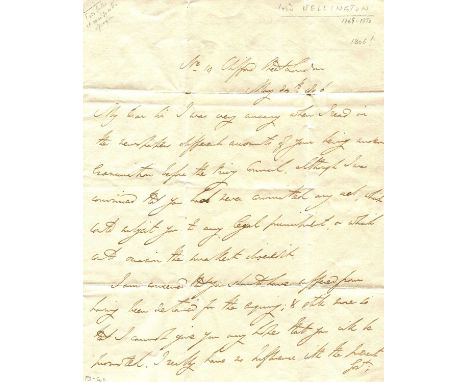 Lord WELLINGTON
1769-1852
1806!
No. 10 Clifford Street London
May 20th 1806
My Dear Sir I was very uneasy when I read in
the newspapers different accounts of your being under
Examination before the Privy Council, although I was
convinced that you had never committed any act, which
could subject you to any legal punishment, or which
could occasion the smallest discredit.
I am concerned that you should have suffered from
having been detained for the enquiry; & still more so
that I cannot give you any hope that you will be
promoted. I really have no influence with the present
Govt.